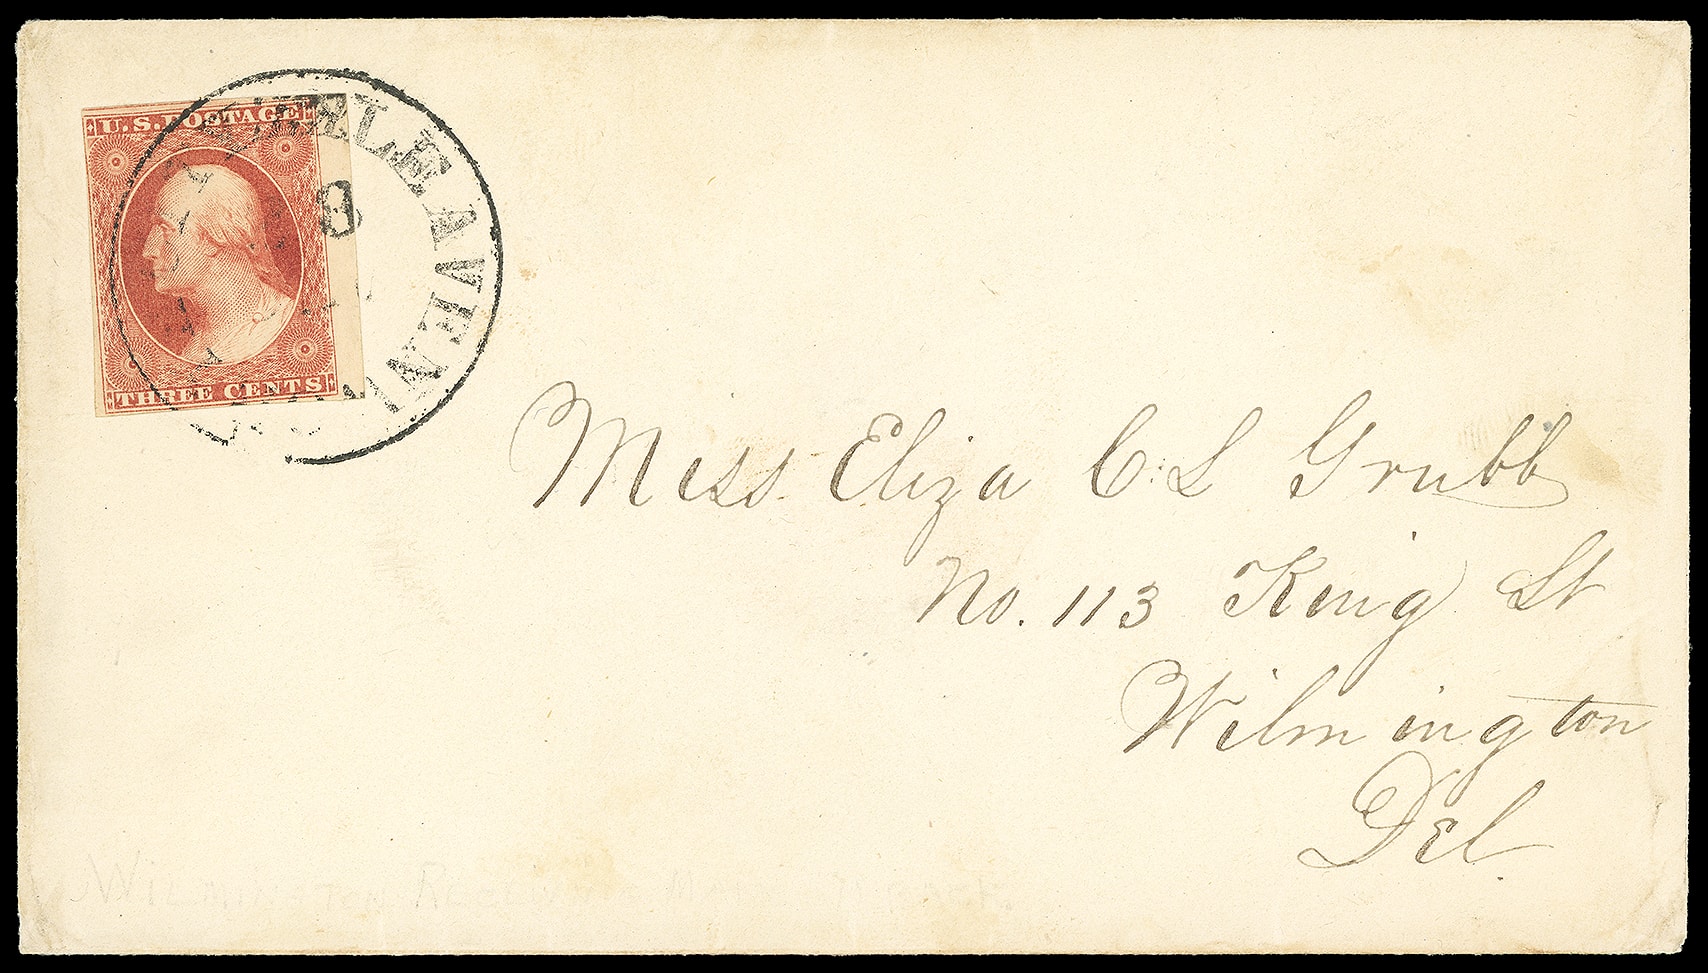 U.S. POSTAGE
THREE CENTS
LEAVEN
8
Miss Eliza C: L Grubb
No. 113 King St
Wilmington
Del
WILMINGTON